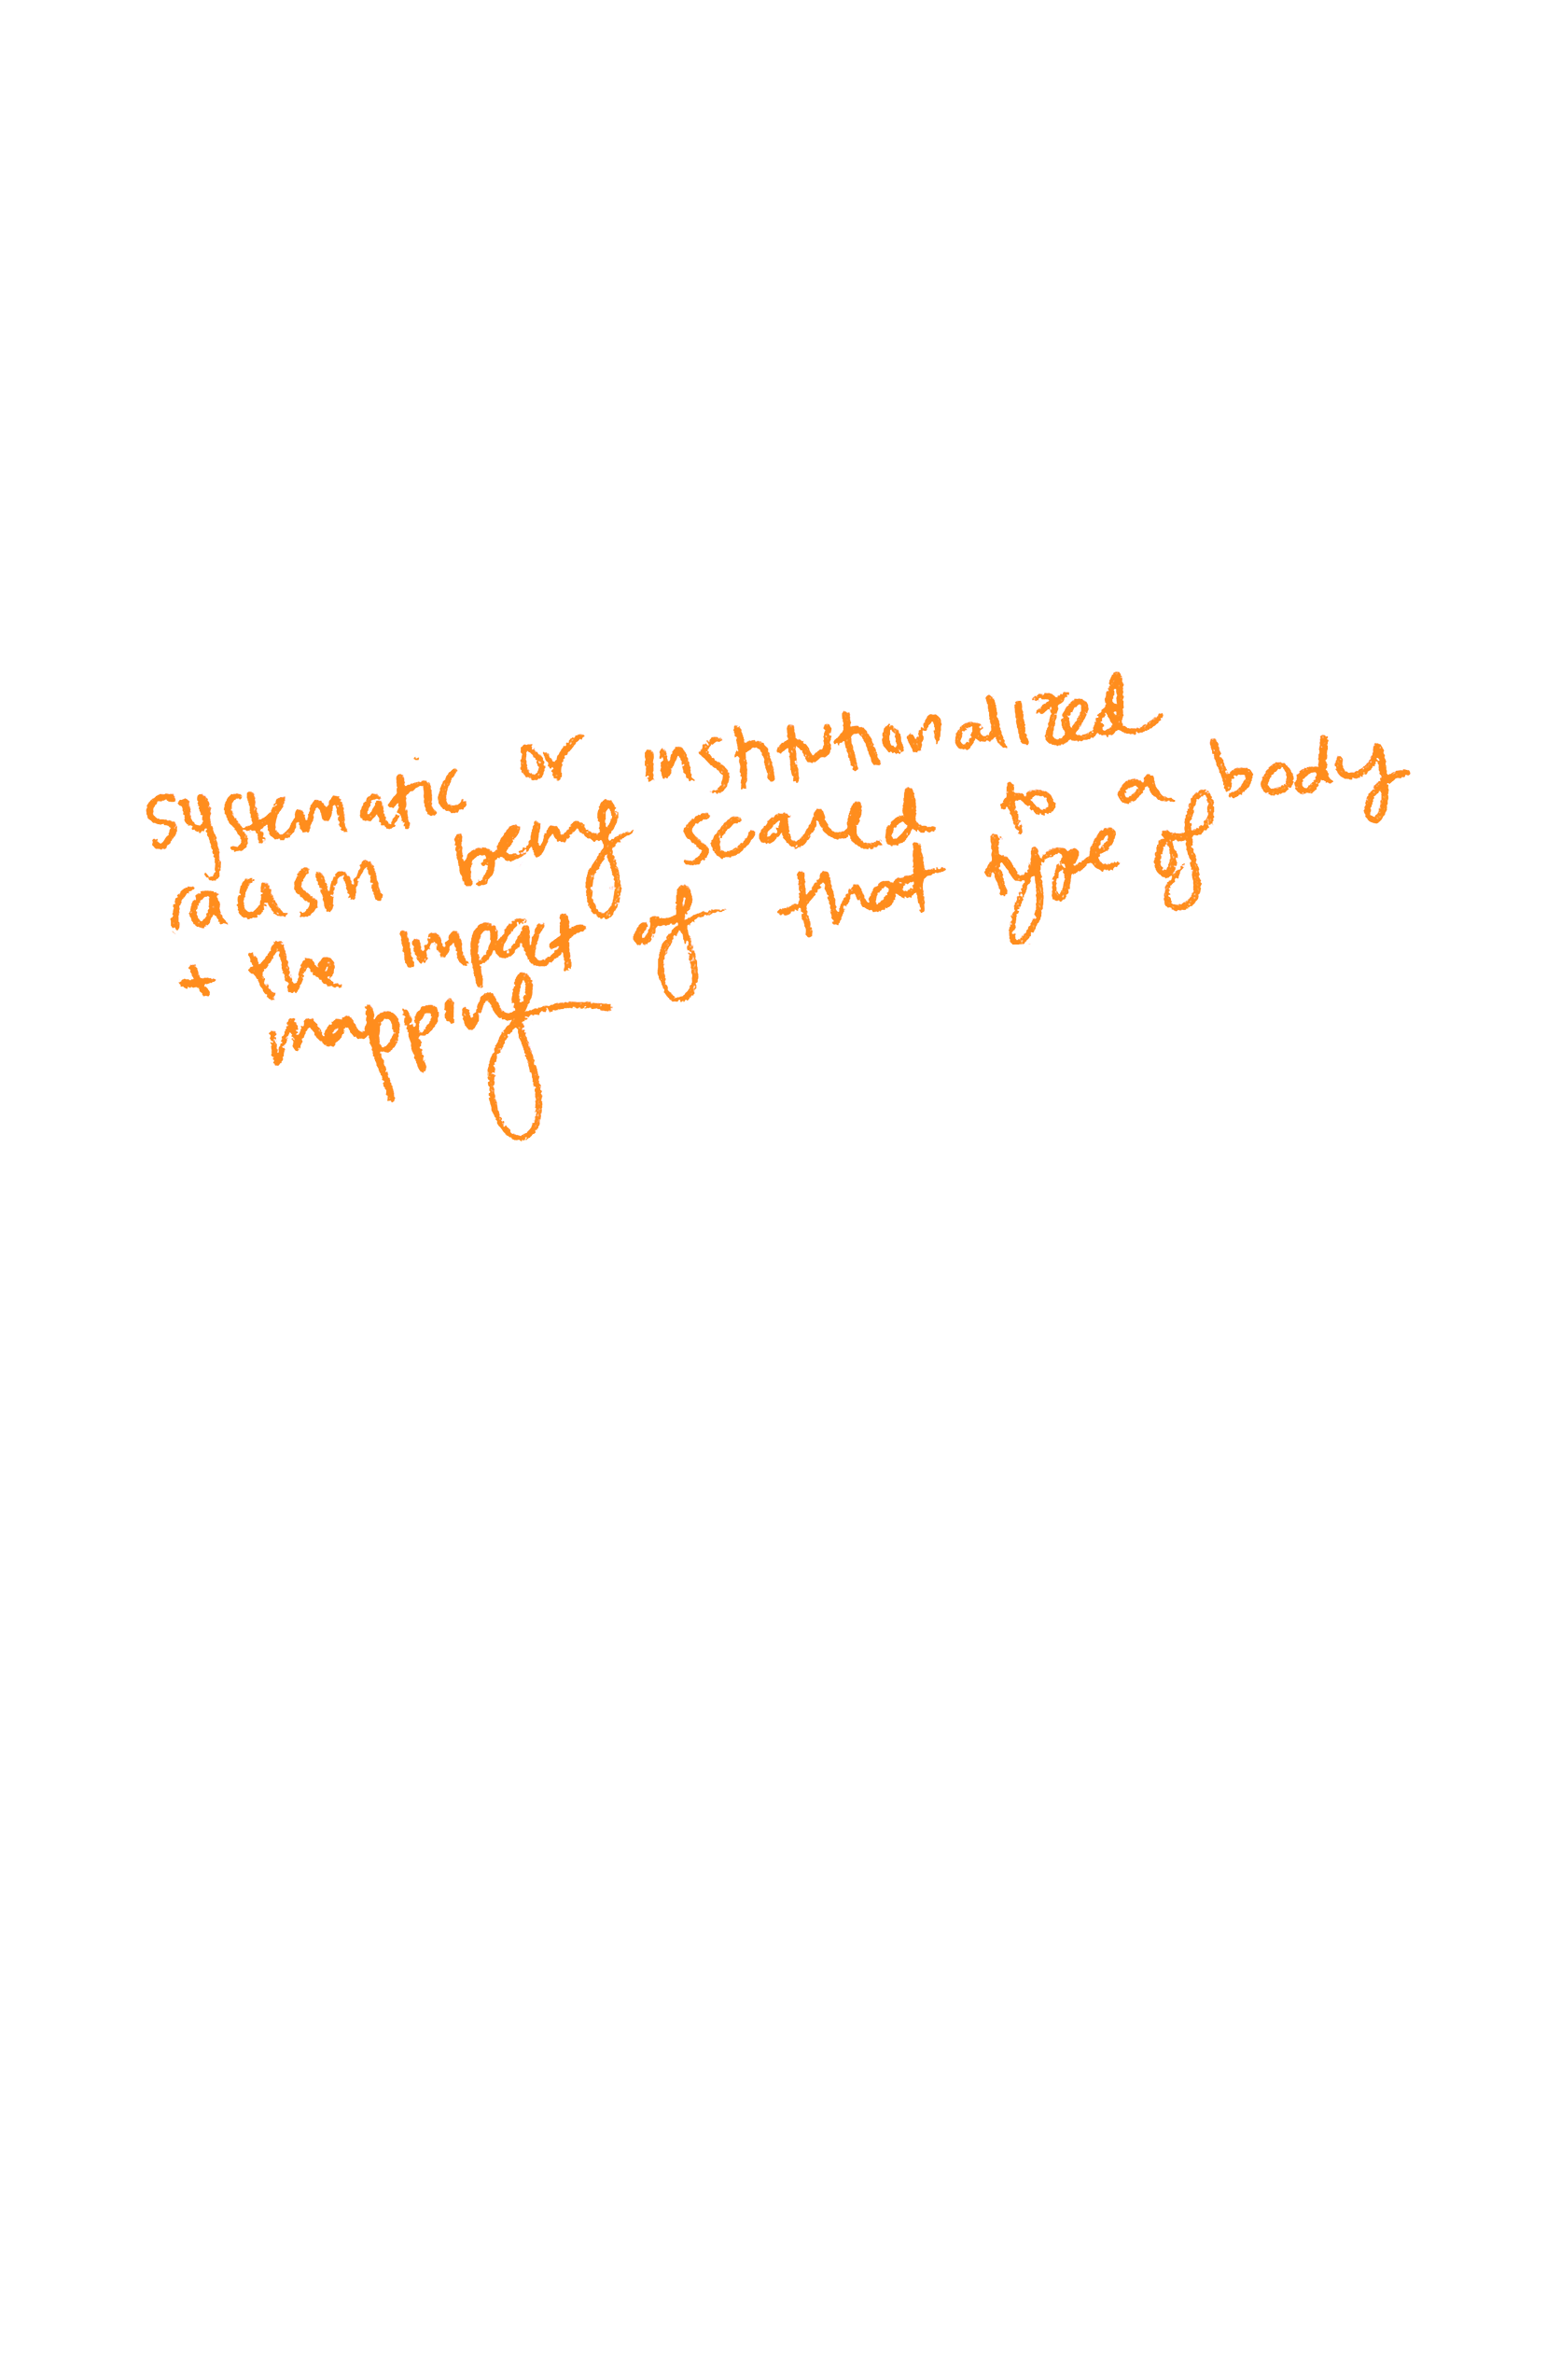 systematic or institutionalized
racism being scaled to a body
+ the impact of that type of
mapping